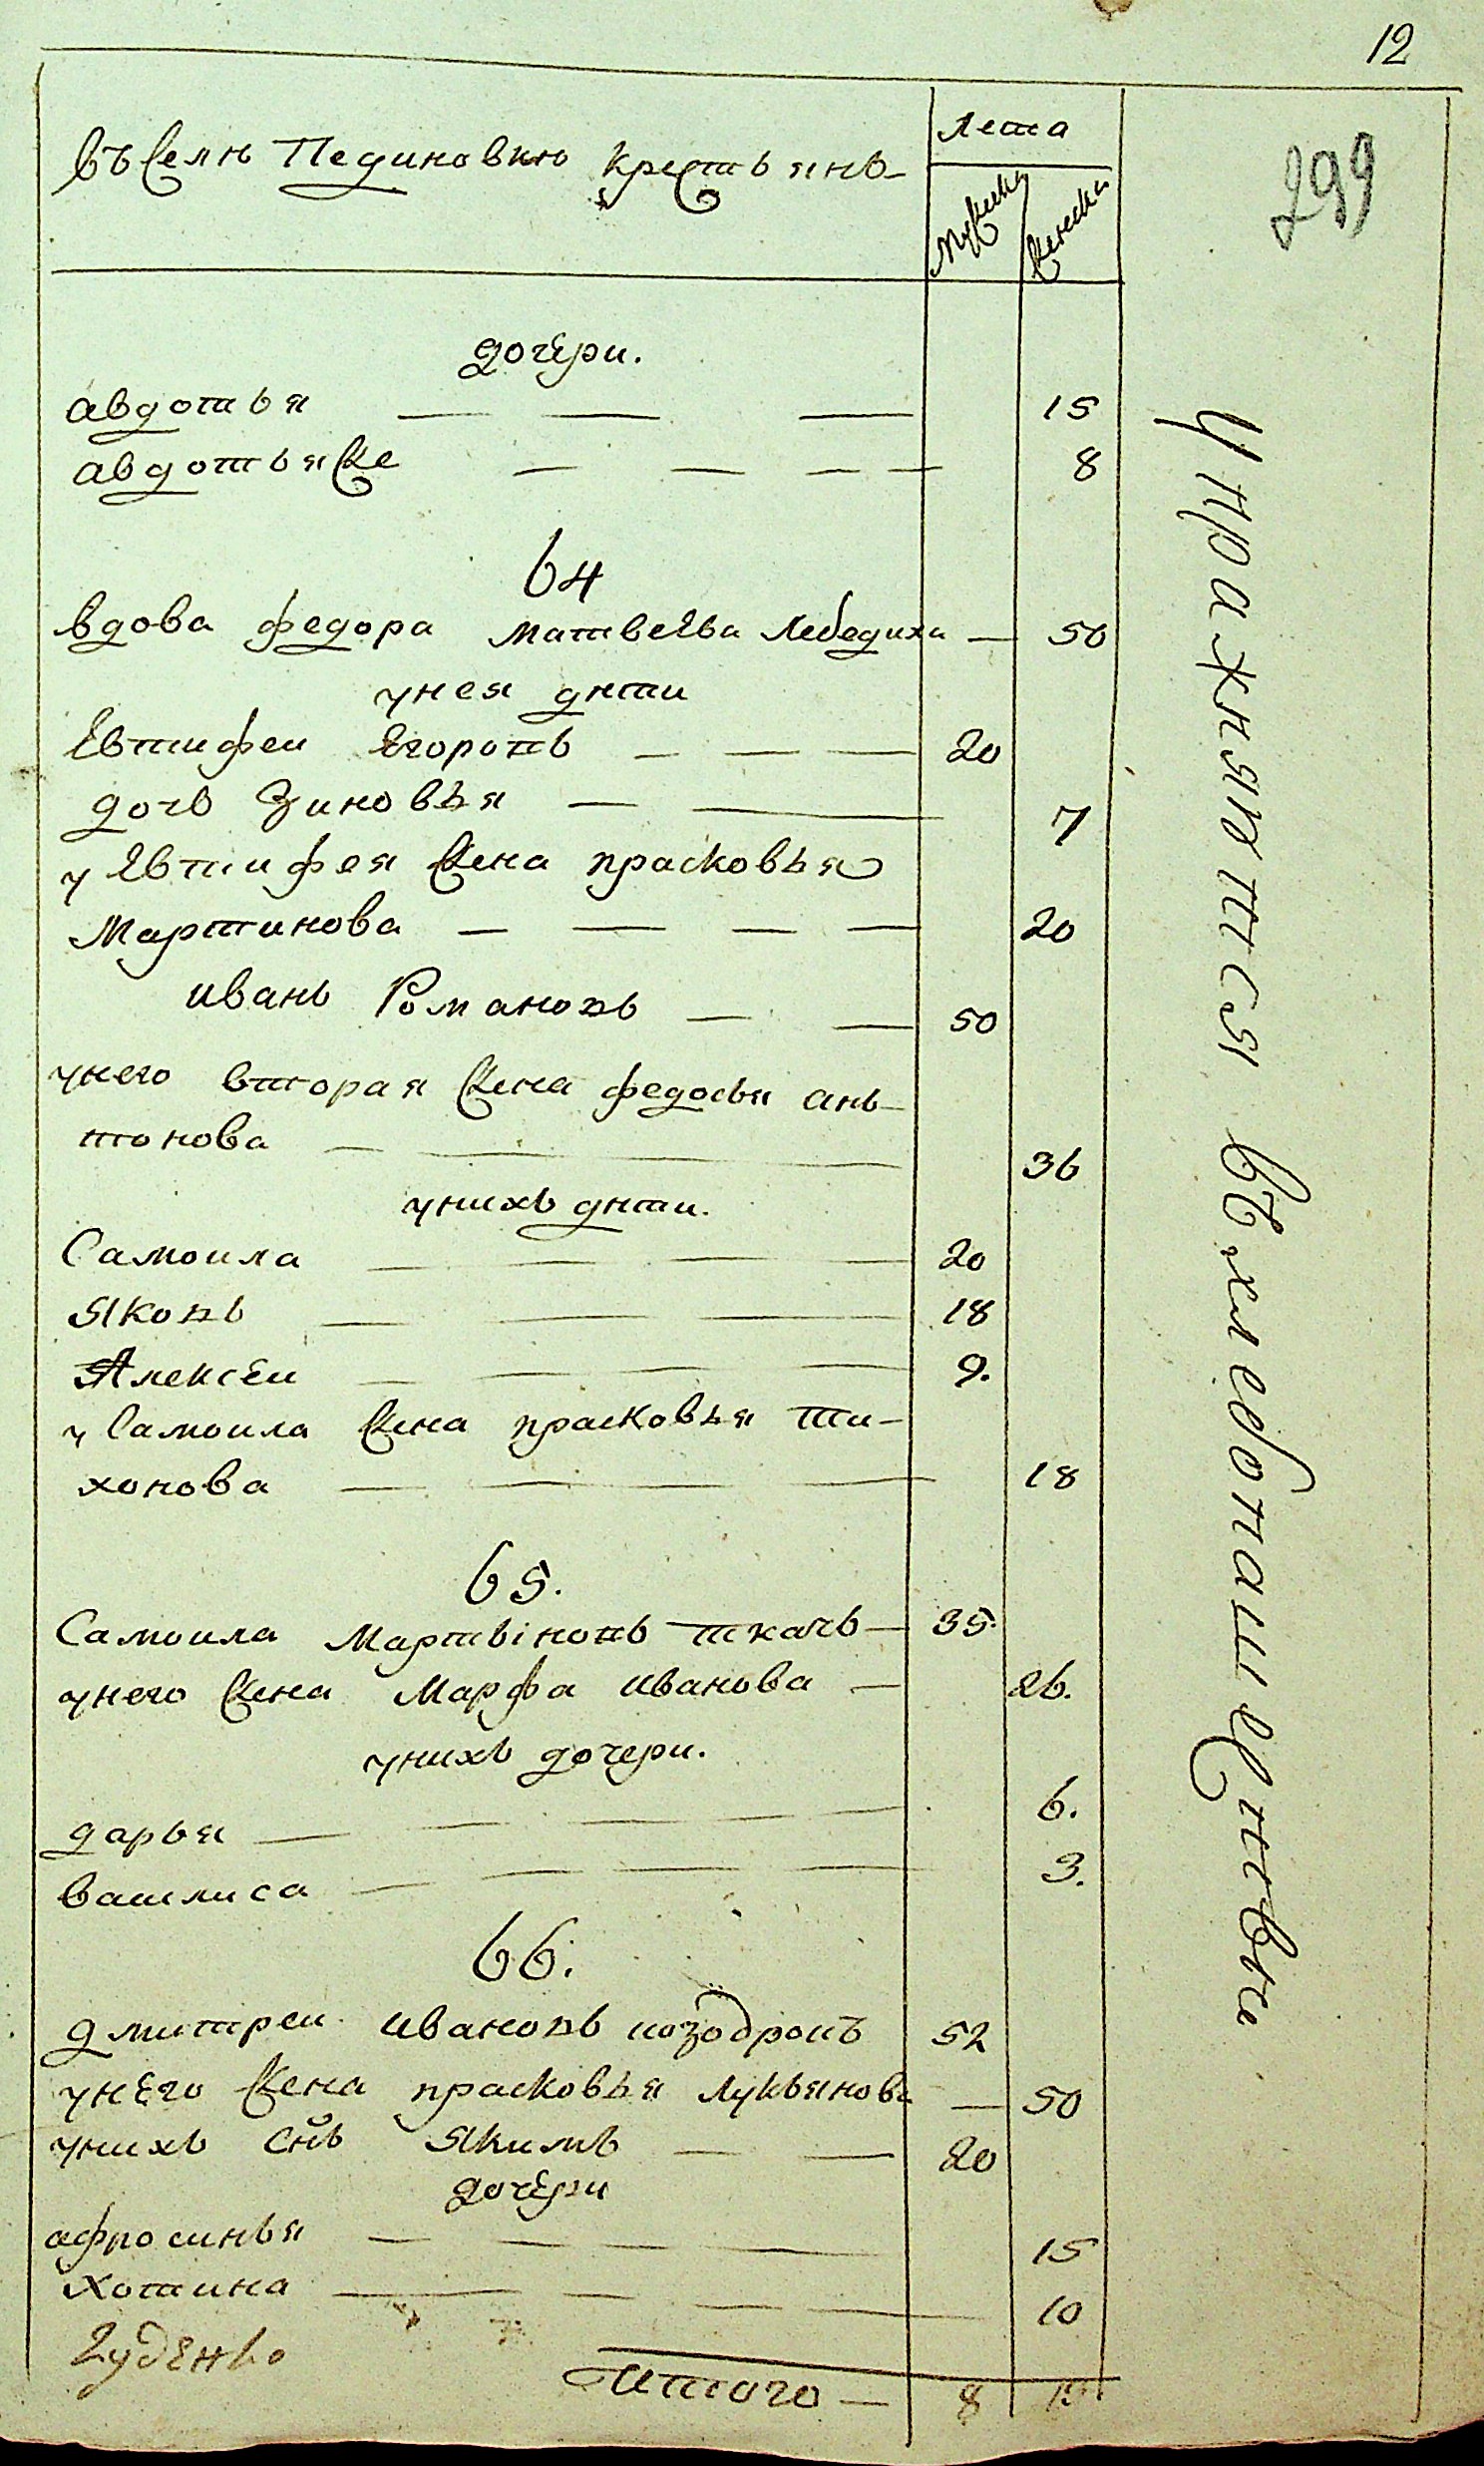 12
299
въ Селѣ Пединовкѣ крестьянъ
Лета
Мужиска
Женска
дочери.
авдотья 15
авдотья же 8
64
вдова федора матвеева Лебедиха 50
унея дѣти
Евтифеи Егоровъ 20
дочь Зиновья 7
у Евтифея жена прасковья
Мартинова 20
иванъ Романовъ 50
унего вторая жена федосья ан-
тонова 36
унихъ дѣти.
Самоила 20
Яковъ 18
Алексеи 9.
у Самоила жена прасковья Ти-
хонова 18
65.
Самоила Мартіновъ ткачь 35.
унего жена Марфа иванова 26.
унихъ дочери.
дарья 6.
василиса 3.
66.
дмитреи ивановъ 52
унего жена прасковья лукьянова 50
унихъ снъ Якимъ 20
дочери
афросинья 15
Хотина 10
Итого 8 15
Упражняются въ хлебопашествѣ